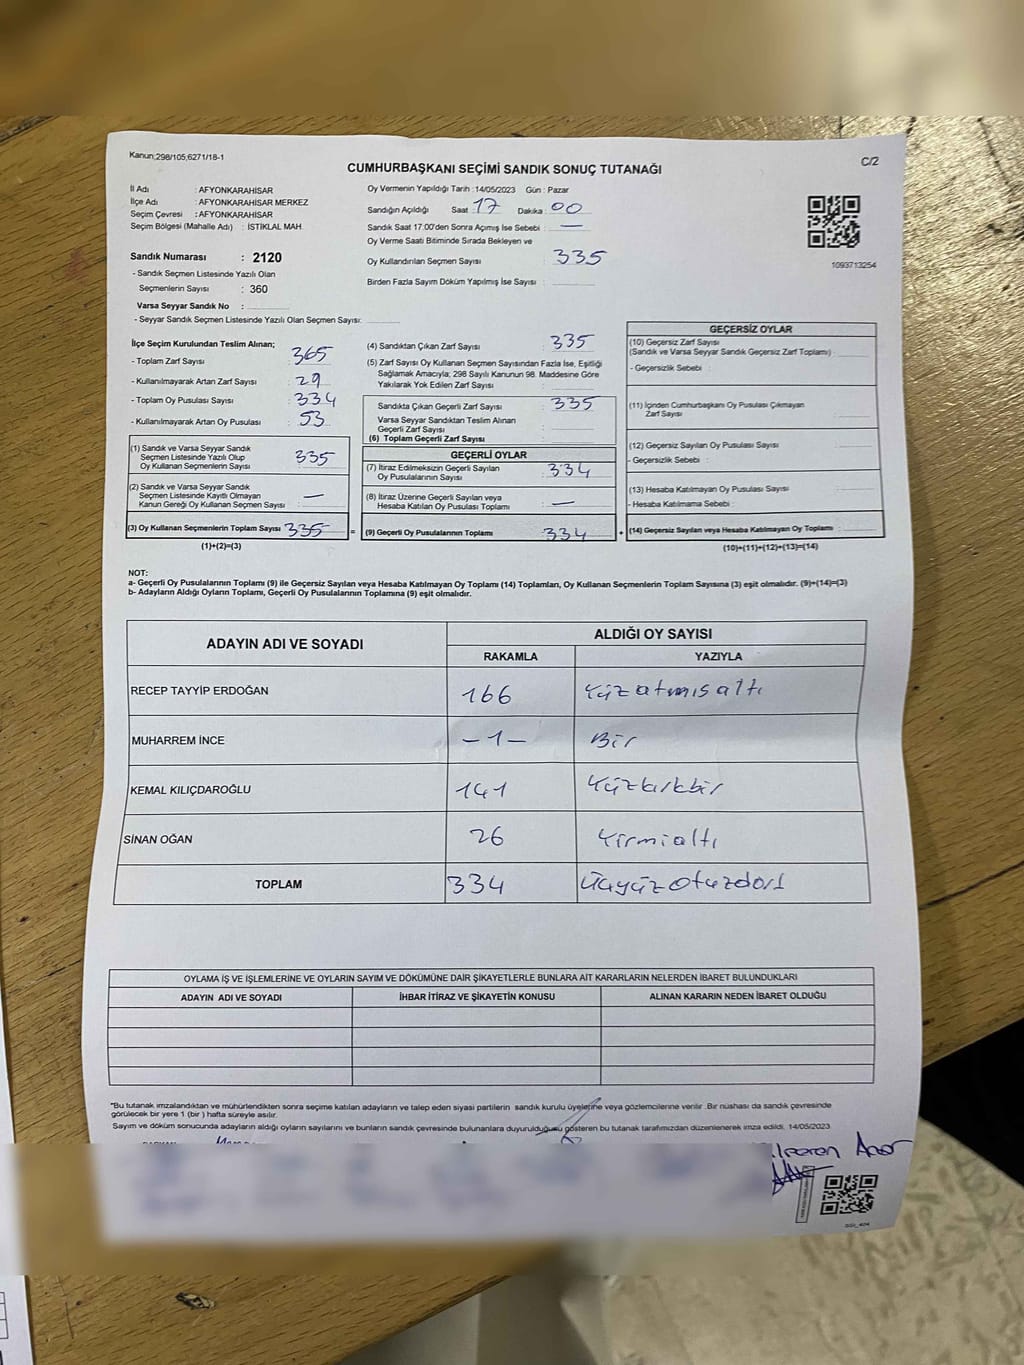 Kanun;298/105;6271/18-1
C/2
CUMHURBAŞKANI SEÇİMİ SANDIK SONUÇ TUTANAĞI
İl Adı : AFYONKARAHİSAR
İlçe Adı : AFYONKARAHİSAR MERKEZ
Seçim Çevresi : AFYONKARAHİSAR
Seçim Bölgesi (Mahalle Adı) : İSTİKLAL MAH.
Sandık Numarası : 2120
- Sandık Seçmen Listesinde Yazılı Olan
Seçmenlerin Sayısı : 360
Varsa Seyyar Sandık No :
- Seyyar Sandık Seçmen Listesinde Yazılı Olan Seçmen Sayısı:
Oy Vermenin Yapıldığı Tarih :14/05/2023 Gün : Pazar
Sandığın Açıldığı Saat : 17 Dakika : 00
Sandık Saat 17:00'den Sonra Açımış İse Sebebi : —
Oy Verme Saati Bitiminde Sırada Bekleyen ve
Oy Kullandırılan Seçmen Sayısı : 335
Birden Fazla Sayım Döküm Yapılmış İse Sayısı :
1093713254
İlçe Seçim Kurulundan Teslim Alınan;
- Toplam Zarf Sayısı : 365
- Kullanılmayarak Artan Zarf Sayısı : 29
- Toplam Oy Pusulası Sayısı : 334
- Kullanılmayarak Artan Oy Pusulası : 53
(1) Sandık ve Varsa Seyyar Sandık
Seçmen Listesinde Yazılı Olup
Oy Kullanan Seçmenlerin Sayısı : 335
(2) Sandık ve Varsa Seyyar Sandık
Seçmen Listesinde Kayıtlı Olmayan
Kanun Gereği Oy Kullanan Seçmen Sayısı : —
(3) Oy Kullanan Seçmenlerin Toplam Sayısı : 335
(1)+(2)=(3)
(4) Sandıktan Çıkan Zarf Sayısı : 335
(5) Zarf Sayısı Oy Kullanan Seçmen Sayısından Fazla İse, Eşitliği
Sağlamak Amacıyla; 298 Sayılı Kanunun 98. Maddesine Göre
Yakılarak Yok Edilen Zarf Sayısı :
Sandıkta Çıkan Geçerli Zarf Sayısı : 335
Varsa Seyyar Sandıktan Teslim Alınan
Geçerli Zarf Sayısı :
(6) Toplam Geçerli Zarf Sayısı :
GEÇERLİ OYLAR
(7) İtiraz Edilmeksizin Geçerli Sayılan
Oy Pusulalarının Sayısı : 334
(8) İtiraz Üzerine Geçerli Sayılan veya
Hesaba Katılan Oy Pusulası Toplamı : —
= (9) Geçerli Oy Pusulalarının Toplamı : 334
GEÇERSİZ OYLAR
(10) Geçersiz Zarf Sayısı
(Sandık ve Varsa Seyyar Sandık Geçersiz Zarf Toplamı) :
- Geçersizlik Sebebi :
(11) İçinden Cumhurbaşkanı Oy Pusulası Çıkmayan
Zarf Sayısı :
(12) Geçersiz Sayılan Oy Pusulası Sayısı :
- Geçersizlik Sebebi :
(13) Hesaba Katılmayan Oy Pusulası Sayısı :
- Hesaba Katılmama Sebebi :
+ (14) Geçersiz Sayılan veya Hesaba Katılmayan Oy Toplamı :
(10)+(11)+(12)+(13)=(14)
NOT:
a- Geçerli Oy Pusulalarının Toplamı (9) ile Geçersiz Sayılan veya Hesaba Katılmayan Oy Toplamı (14) Toplamları, Oy Kullanan Seçmenlerin Toplam Sayısına (3) eşit olmalıdır. (9)+(14)=(3)
b- Adayların Aldığı Oyların Toplamı, Geçerli Oy Pusulalarının Toplamına (9) eşit olmalıdır.
ADAYIN ADI VE SOYADI ALDIĞI OY SAYISI
RAKAMLA YAZIYLA
RECEP TAYYİP ERDOĞAN 166 Yüzatmısaltı
MUHARREM İNCE -1- Bir
KEMAL KILIÇDAROĞLU 141 Yüzkırkbir
SİNAN OĞAN 26 Yirmialtı
TOPLAM 334 Üçyüzotuzdört
OYLAMA İŞ VE İŞLEMLERİNE VE OYLARIN SAYIM VE DÖKÜMÜNE DAİR ŞİKAYETLERLE BUNLARA AİT KARARLARIN NELERDEN İBARET BULUNDUKLARI
ADAYIN ADI VE SOYADI İHBAR İTİRAZ VE ŞİKAYETİN KONUSU ALINAN KARARIN NEDEN İBARET OLDUĞU
*Bu tutanak imzalandıktan ve mühürlendikten sonra seçime katılan adayların ve talep eden siyasi partilerin sandık kurulu üyelerine veya gözlemcilerine verilir. Bir nüshası da sandık çevresinde
görülecek bir yere 1 (bir ) hafta süreyle asılır.
Sayım ve döküm sonucunda adayların aldığı oyların sayılarını ve bunların sandık çevresinde bulunanlara duyurulduğunu gösteren bu tutanak tarafımızdan düzenlenerek imza edildi. 14/05/2023